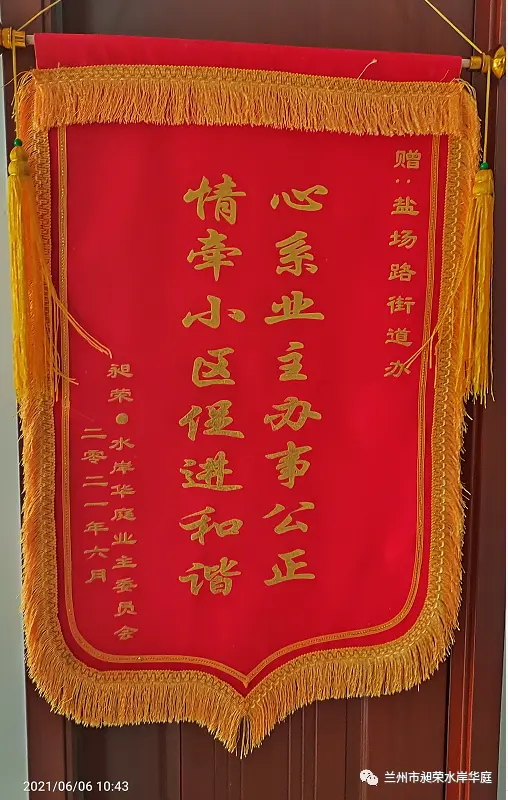 赠:盐场路街道办
心系业主办事公正
情牵小区促进和谐
昶荣●水岸华庭业主委员会
二零二一年六月
2021/06/06 10:43
兰州市昶荣水岸华庭